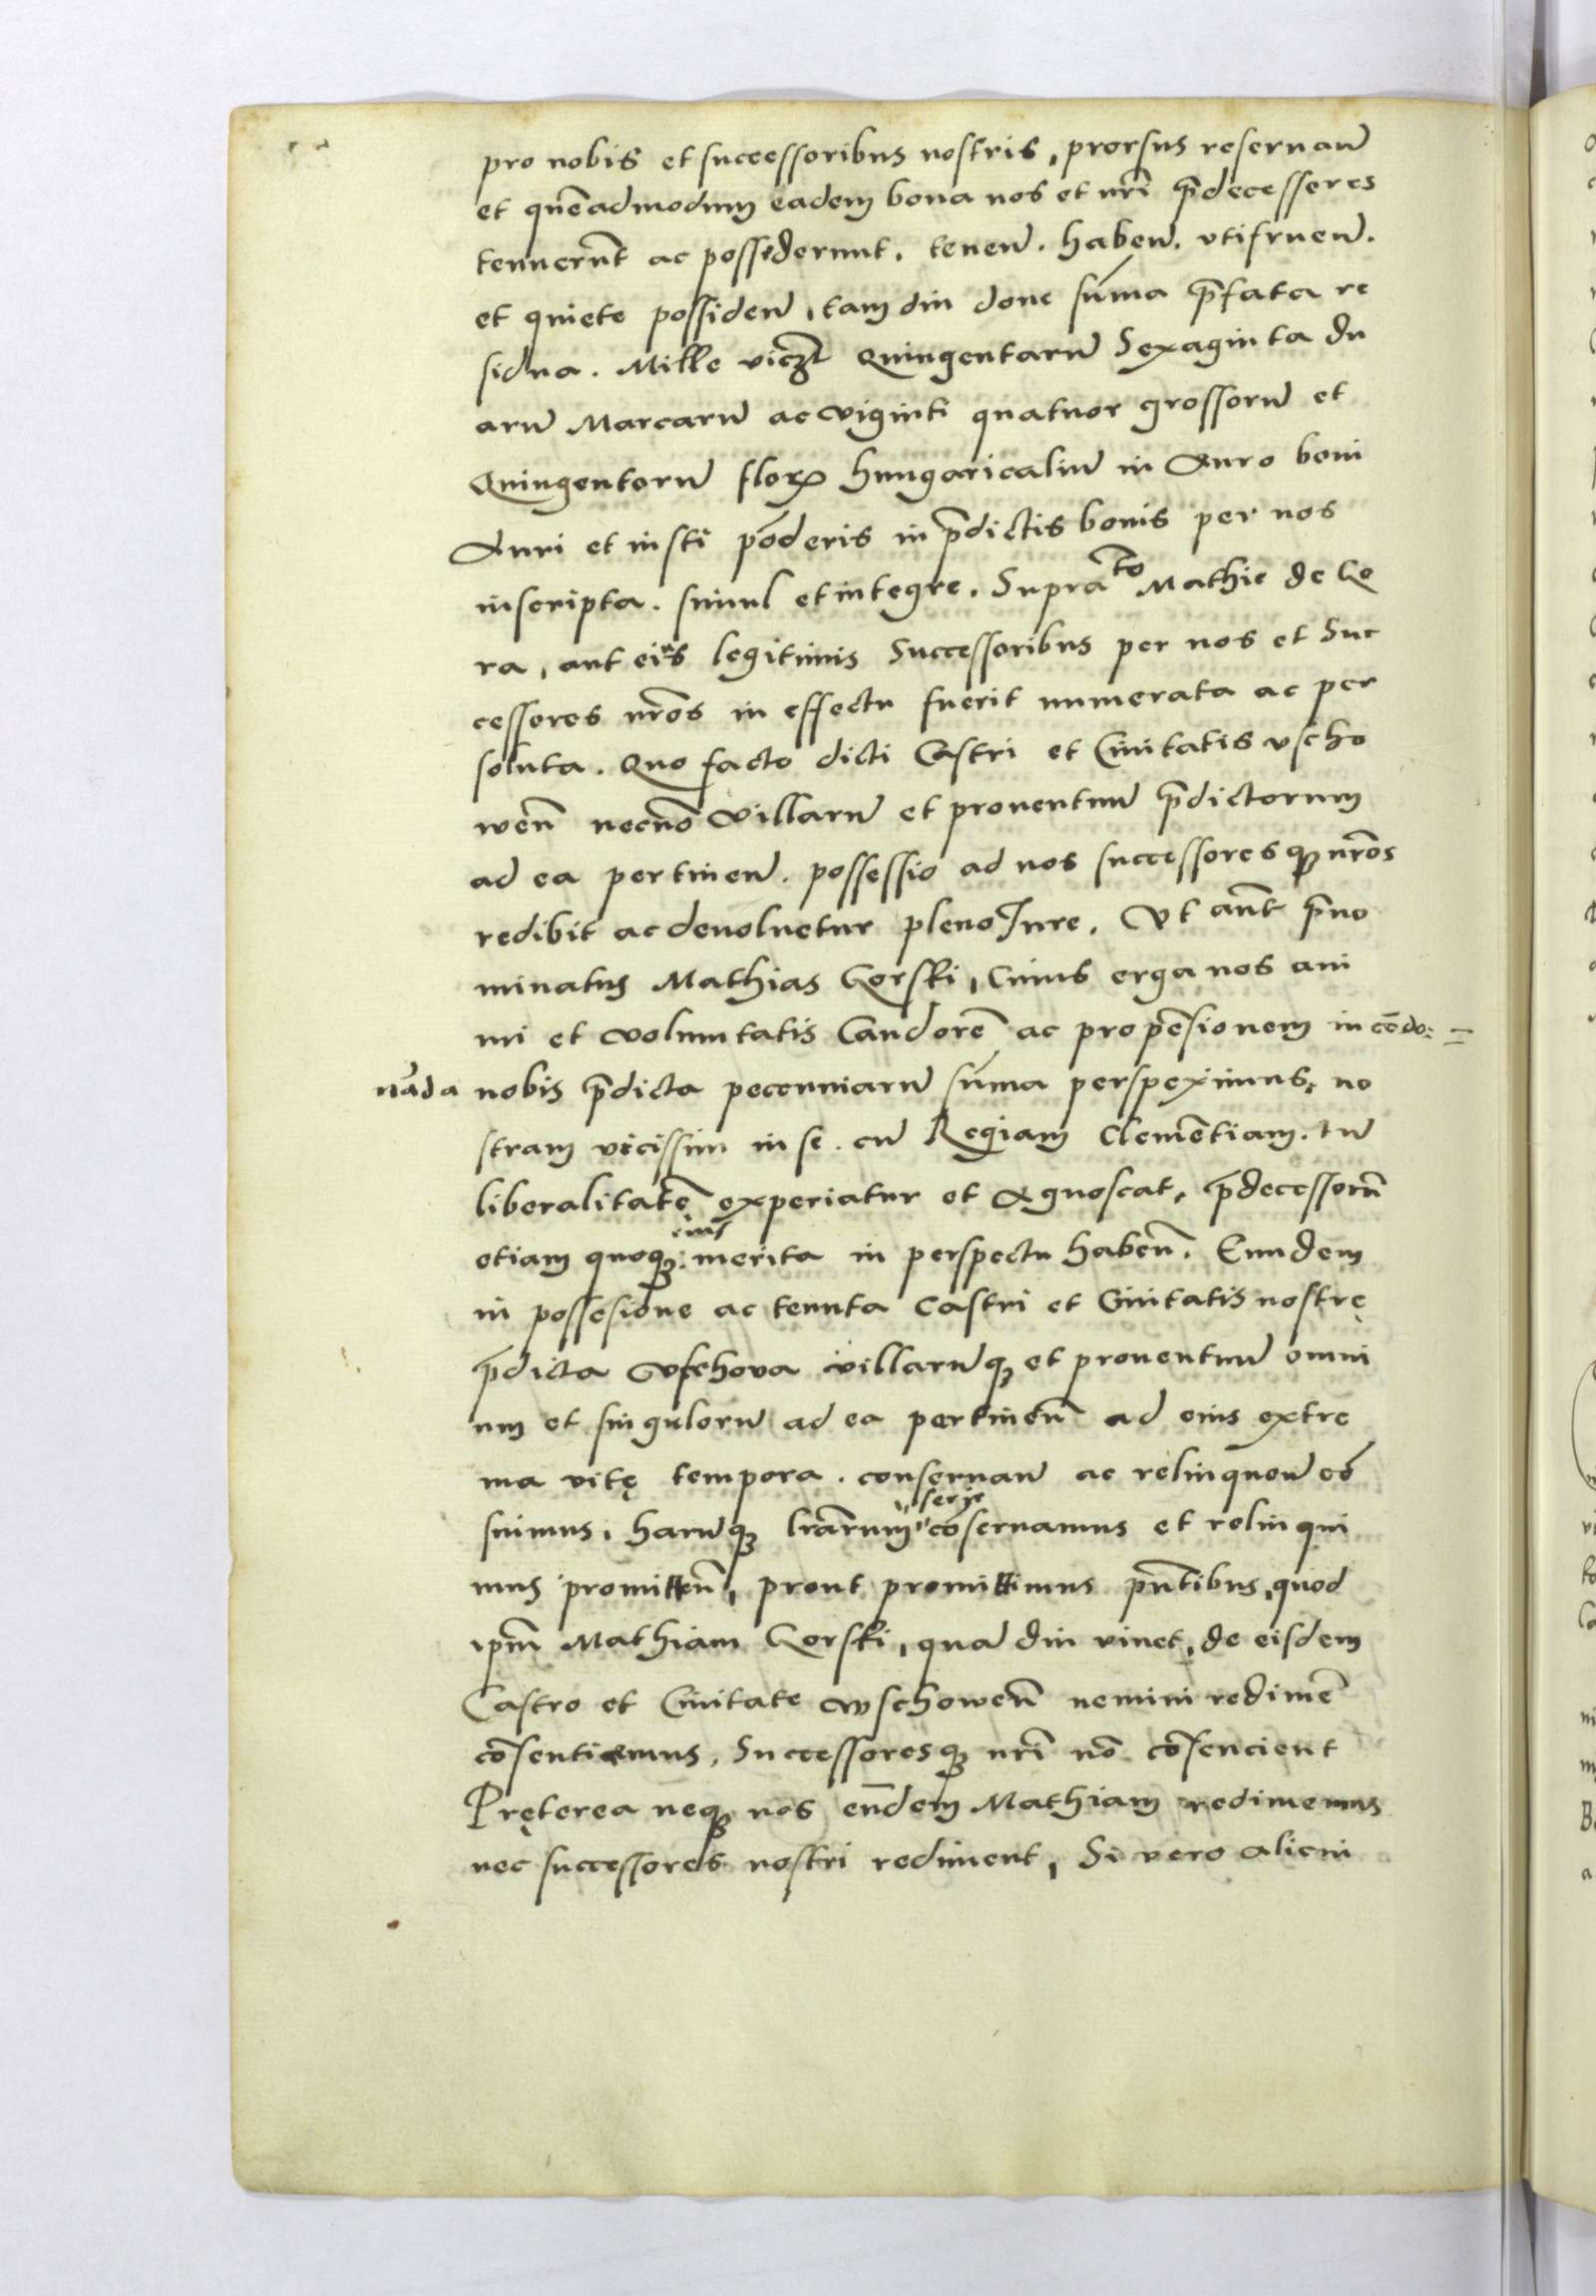 pro nobis et successoribus nostris, prorsus reseruan̄
et quēadmodum eadem bona nos et nrī p̄decessores
tenuerūt ac possederunt. tenen̄. haben̄. vtifruen̄.
et quiete possiden̄, tam diu donc sum̄a p̄fata re
sidua. Mille viczt Quingentarū Sexaginta du
arū Marcarū ac viginti quatuor grossorū et
Quingentorū florꝝ hungaricaliū in Auro boni
Auri et iusti pōderis in p̄dictis bonis per nos
inscripta. simul et integre. Supraᵗᵒ Mathie de Go
ra, aut eius legitimis Successoribus per nos et Suc
cessores nrōs in effectu fuerit numerata ac per
soluta. Quo facto dicti Castri et Ciuitatis vscho
wen̄ necnō villarū et prouentuū p̄dictorum
ad ea pertinen̄. possessio ad nos successoresqꝫ nrōs
redibit ac deuoluetur pleno Jure. Vt aūt p̄no
minatus Mathias Gorski, Cuius erga nos ani
mi et voluntatis Candorē ac propēsionem in cōdo:
nāda nobis p̄dicta pecenniarū sum̄a perspeximus, no
stram vicissim in se. cū Regiam Clemētiam. tū
liberalitatē experiatur et Agnoscat, p̄decessorū
etiam quoqꝫ eius merita in perspectu haben̄. Eundem
in possesione ac tenuta Castri et Ciuitatis nostrę
p̄dicta Vschova villarūqꝫ et prouentuū omni
um et singulorū ad ea pertinēn ad eius extre
ma vitę tempora. conseruan̄ ac relinquen̄ cē
suimus, harūqꝫ lrārum serie cōseruamus et relinqui
mus promitten̄, prout promittimus pn̄tibus, quod
ipm̄ Mathiam Gorski, quā diu viuet, de eisdem
Castro et Ciuitate wschowen̄ nemini redimē
cōsentiemus, Successoresqꝫ nrī nō cōsencient
Pręterea neqꝫ nos eūdem Mathiam redimemus
nec successores nostri rediment, Si vero alicui